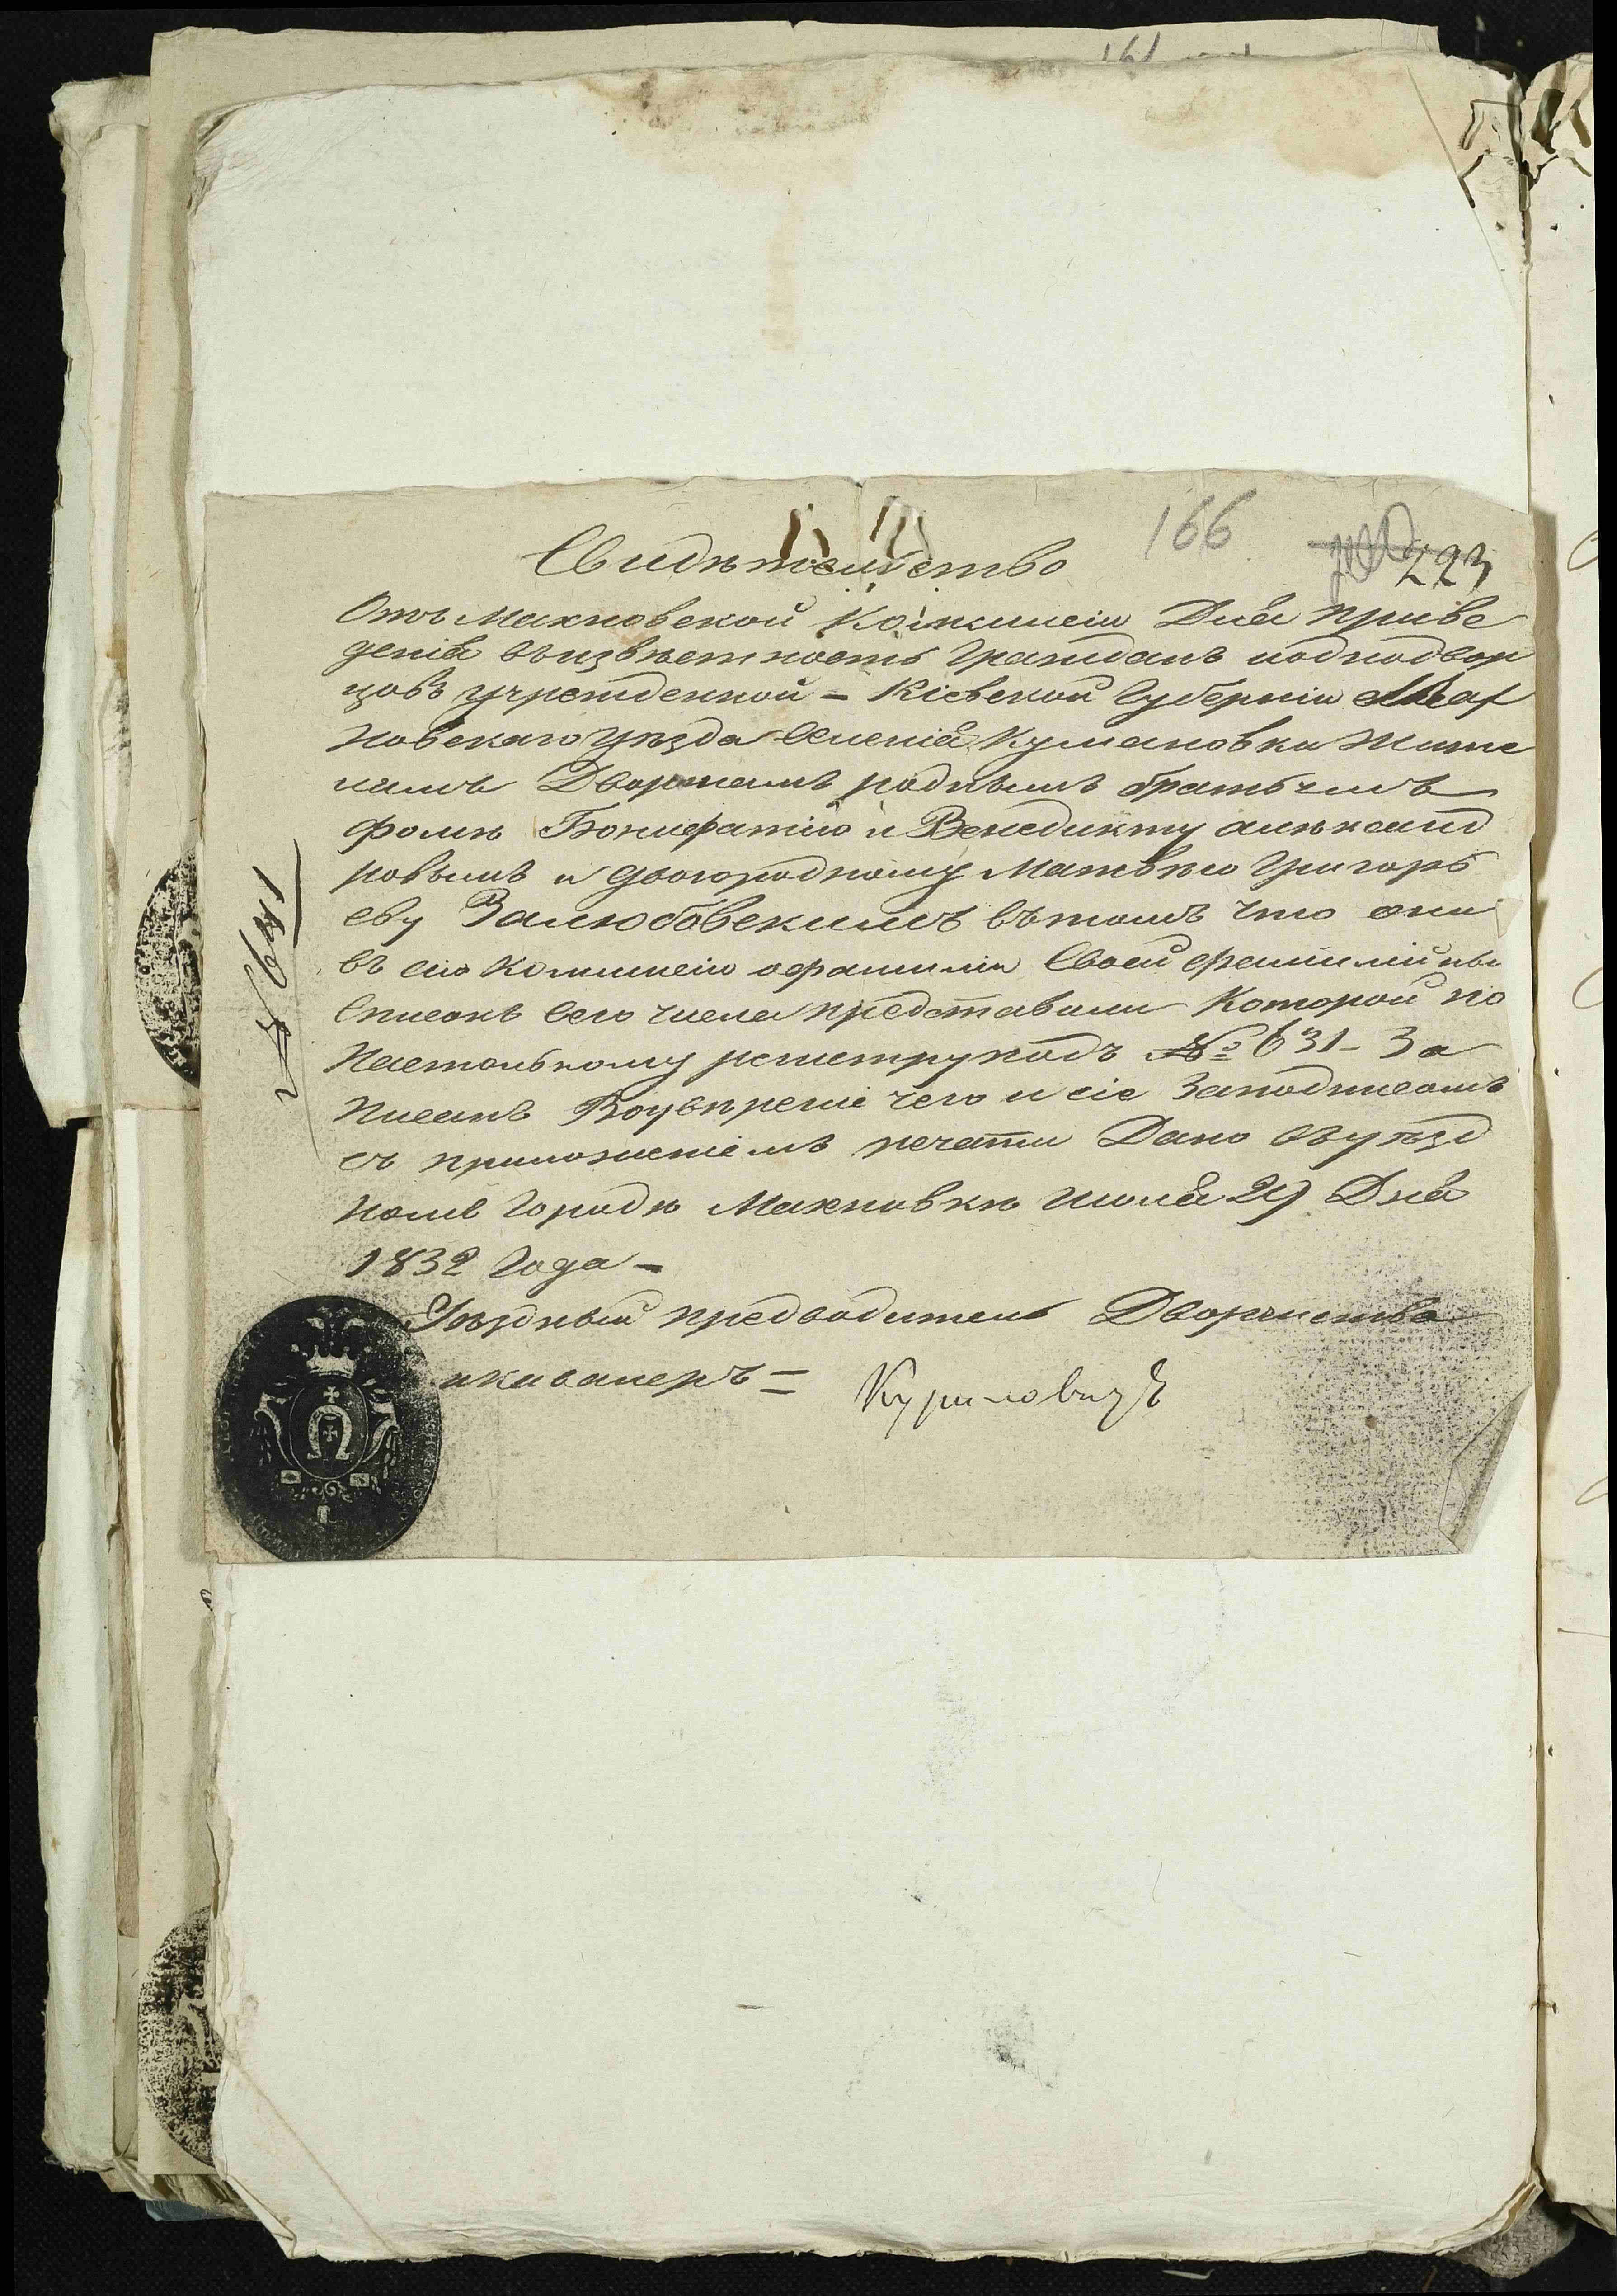 161
166
223
Свидѣтельство
Отъ Махновской Комисіи Для приве
денія въизвѣстность Гражданъ иоднодвор
цовъ учрежденной - Кіевской Губерніи Мах
новскаго уѣзда Селенія Кумановки Жите
лямъ Дворянамъ роднымъ братьямъ
Фомѣ Бонифатію и Венедикту алѣксанд
ровымъ и двоюродному Матвѣю Григорь
еву Залюбовскимъ вътомъ что они
въ сію Комисію офамиліи Своей фамилійны
Списокъ Сего числа представили Которой по
Настольному регистру подъ № 631 - За
писанъ Воувѣреніе чего и сіе Заподписомъ
съ приложеніемъ печати Дано въуѣзд
номъ Городѣ Махновкѣ июля 29 Дня
1832 Года -
Уѣздный предводитель Дворянства
икавалеръ =
Куриловичъ
№ 641